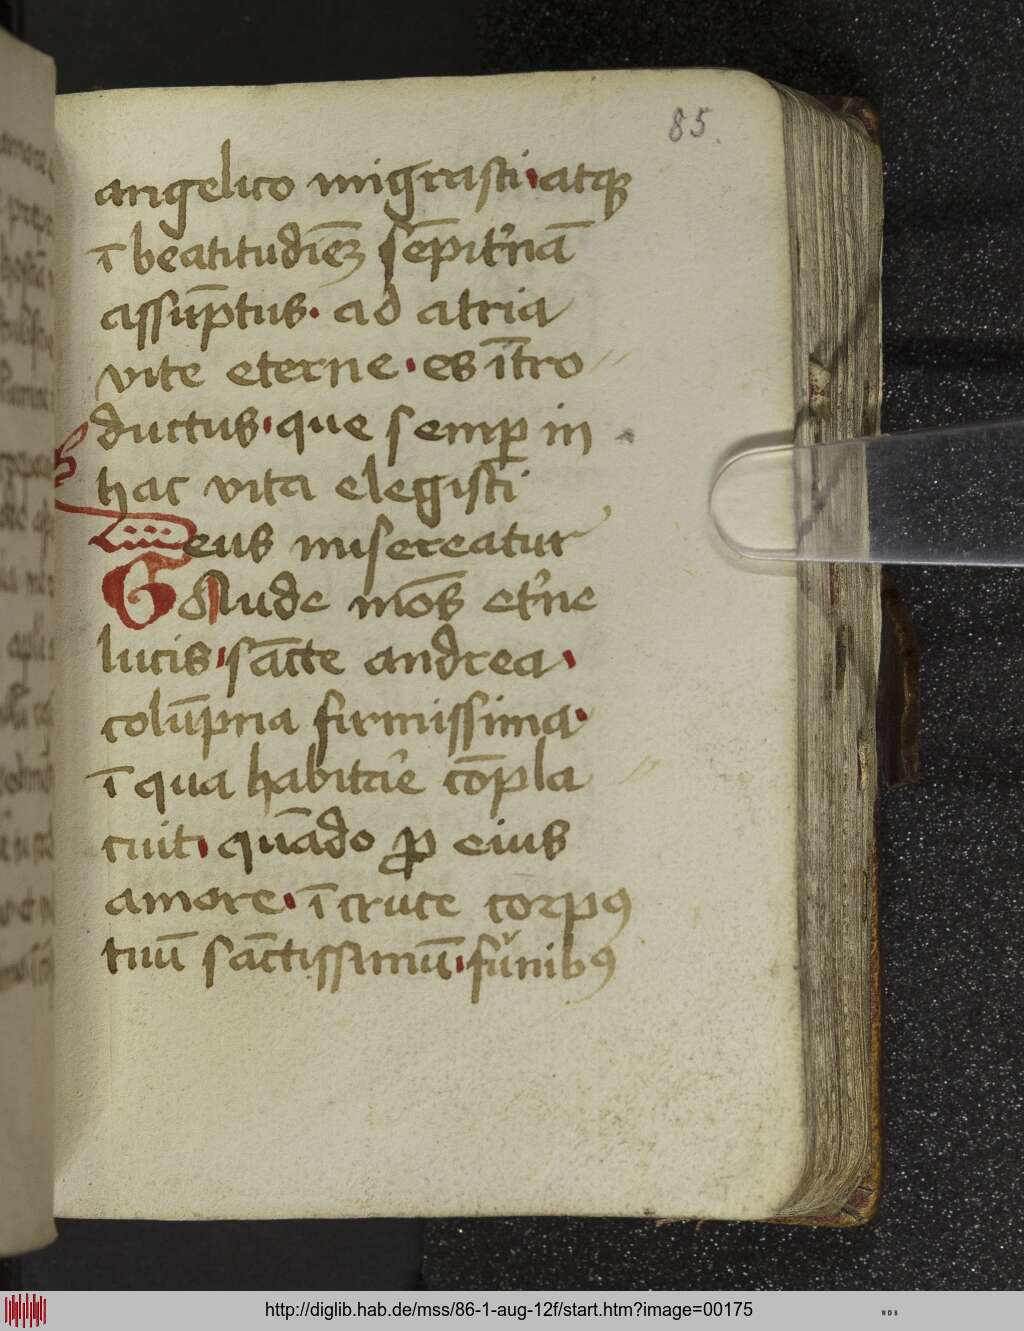 85.
angelico migrasti · atqꝫ
ī beatitudīeꝫ sēpit'nā
assūptus · ad atria
vite eterne · es ītro
ductus · que semꝑ in
hac vita elegisti
eus misereatur
Gaude mōs et'ne
lucis · sācte andrea ·
colūpna firmissima ·
ī qua habita'e cōpla
cuit · quādo ꝓ eius
amore · ī cruce corpꝰ
tuū sāctissimū · funibꝰ
http://diglib.hab.de/mss/86-1-aug-12f/start.htm?image=00175